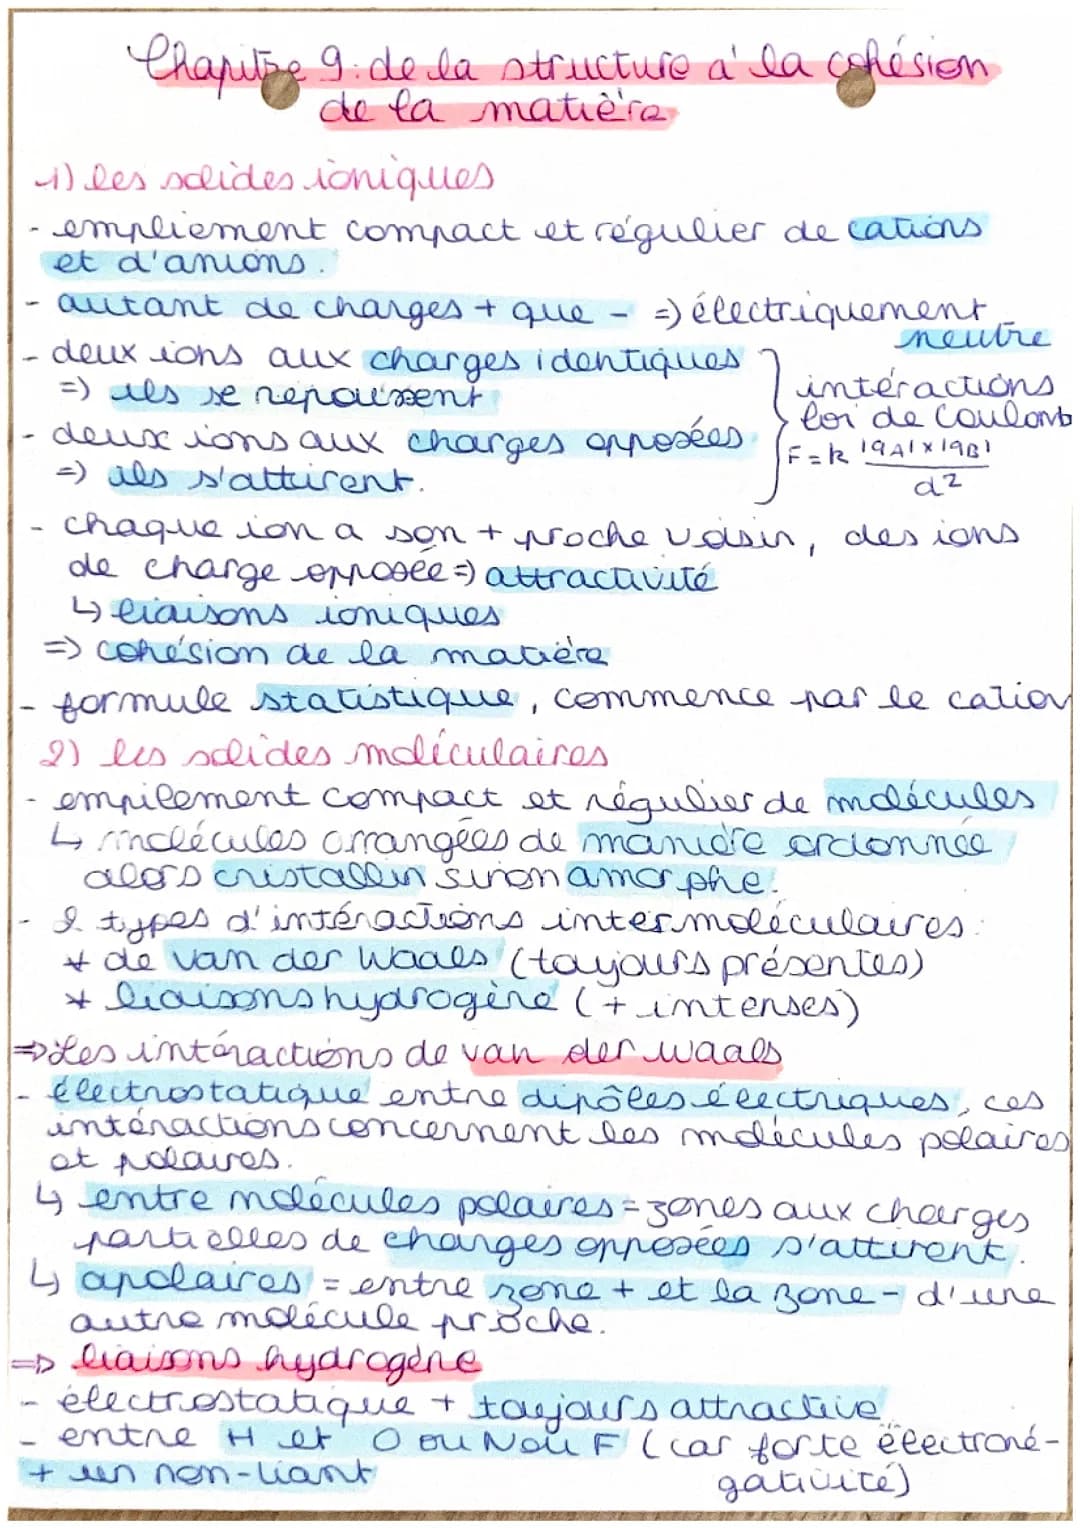 Chapitre 9: de la structure à la cohésion
de la matière
1) les solides ioniques
- empliement compact et régulier de cations
et d'anions.
- autant de charges + que - => électriquement
neutre
- deux ions aux charges identiques
=> ils se repoussent
- deux ions aux charges opposées
=> ils s'attirent.
intéractions
loi de Coulomb
F = k |qA|x|qB|
d²
- chaque ion a son + proche voisin, des ions
de charge opposée => attractivité
↳ liaisons ioniques
=> cohésion de la matière
- formule statistique, commence par le cation
2) les solides moléculaires
- empilement compact et régulier de molécules
↳ molécules arrangées de manière ordonnée
alors cristallin sinon amorphe.
- 2 types d'intéractions intermoléculaires:
* de van der Waals (toujours présentes)
* liaisons hydrogène (+ intenses)
=> Les intéractions de van der waals
- électrostatique entre dipôles électriques, ces
intéractions concernent les molécules polaires
et polaires.
↳ entre molécules polaires = zones aux charges
partielles de charges opposées s'attirent.
↳ apolaires = entre zone + et la zone - d'une
autre molécule proche.
=> liaisons hydrogène
- électrostatique + toujours attractive
- entre H et O ou N ou F (car forte électroné-
+ un non-liant
gativité)